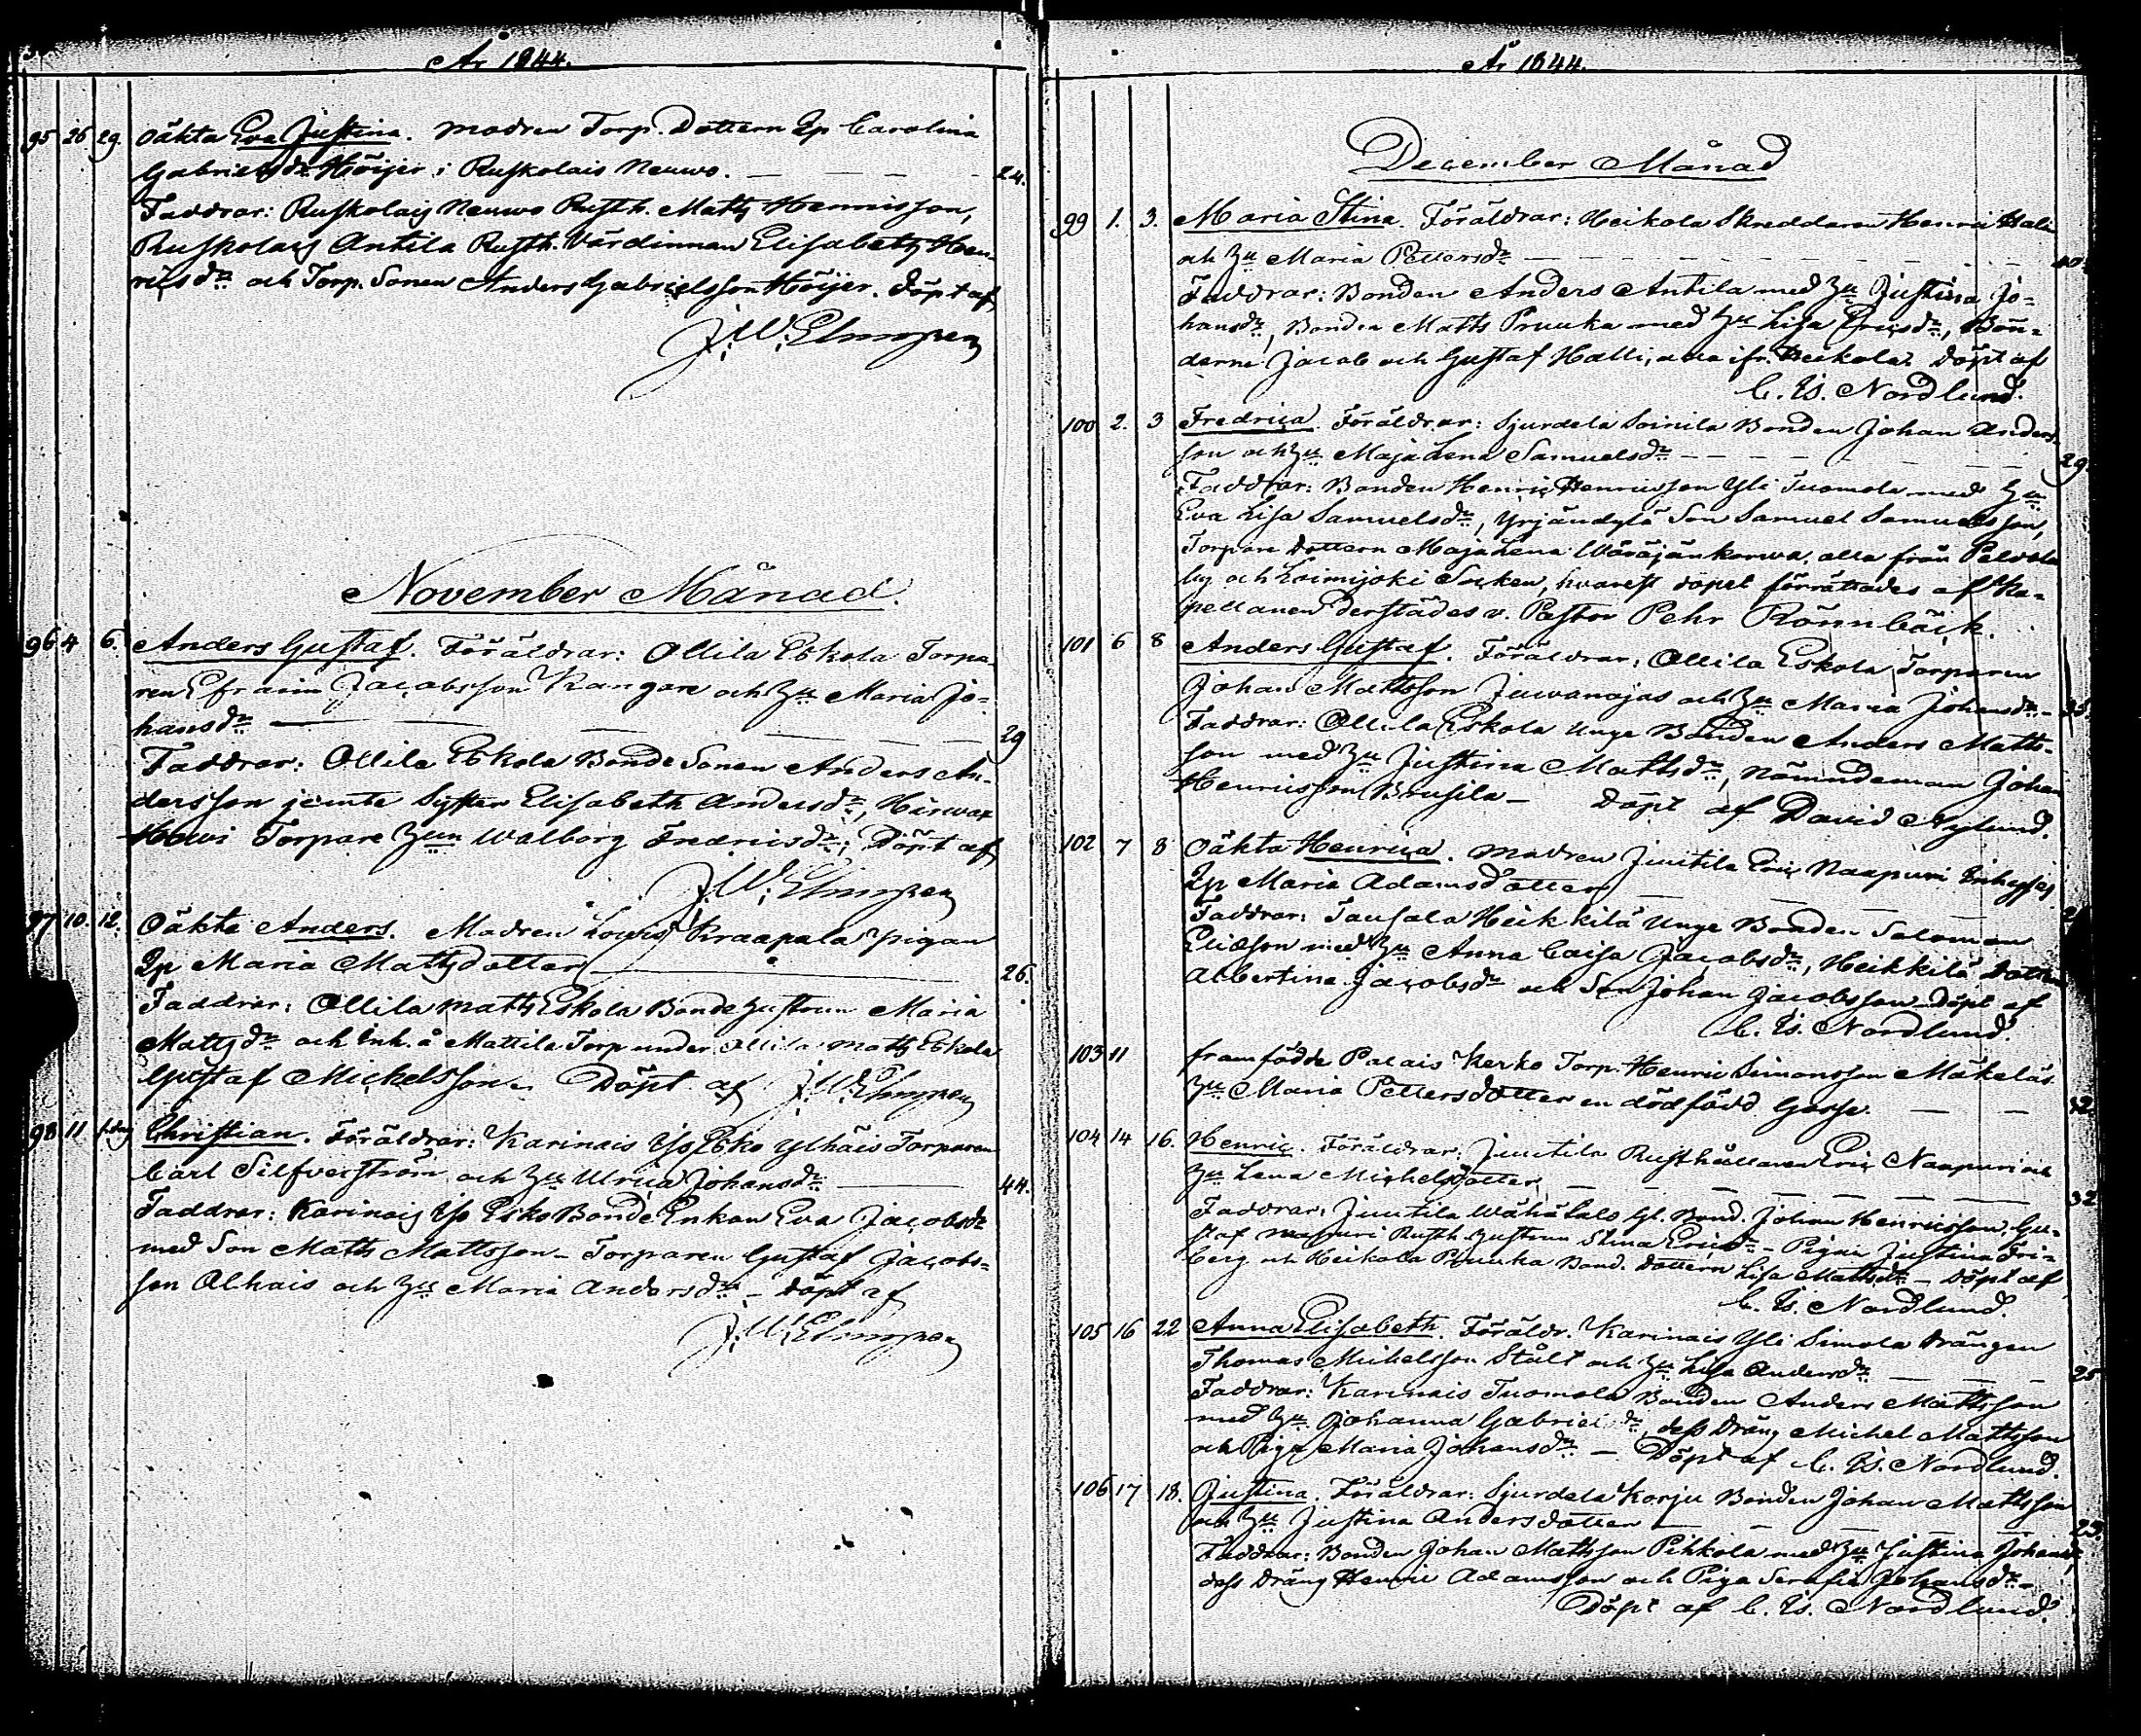 År 1844.
95 26 29. oäkta Eva Justina. modren Torp. Dottern Ip Carolina
Gabrielsdr Höijer i Ruskolais Neuwo. 24.
Faddrar: Ruskolais Neuwo Rusth. Matts Henrisson,
Ruskolais Antila Rusth. Värdinnan Elisabeth Hen-
ricsdr och Torp. Sonen Anders Gabrielsson Höijer. Döpt af
November Månad.
96 4 6. Anders Gustaf. Föräldrar: Ollila Eskola Torpa-
ren Efraim Jacobsson Kangare och Hu Maria Jo-
hansdr 29
Faddrar: Ollila Eskola Bonde Sonen Anders An-
dersson jemte Syster Elisabeth Andersdr, Hirwax
Torpare Hun Walborg Fredricsdr; Döpt af
97 10. 12. Oäkta Anders. Modren Kraapala pigan
Ip Maria Mattsdotter 26.
Faddrar: Ollila Matts Eskola Bonde hustrun Maria
Mattsdr och Inh. å Mattila Torp under Ollila Matts Eskola
Gustaf Michelsson. Döpt af
98 11 s. dag Christian. Föräldrar: Karinais Iso Esko Ylhäis Torparen
Carl Silfverström och Hu Ulrica Johansdr 44.
Faddrar: Karinais Iso Esko Bonde Enkan Eva Jacobsdr
med Son Matts Mattsson - Torparen Gustaf Jacobs-
son Alhais och Hu Maria Andersdr - Döpt af
År 1844.
December Månad
99 1. 3. Maria Stina. Föräldrar: Heikola Skreddaren Henric Hali
och Hu Maria Pettersdr 40.
Faddrar: Bonden Anders Antila med Hu Justina Jo-
hansdr, Bonden Matts Pruuka med Hu Lisa Ericsdr, Bön-
derne Jacob och Gustaf Halli, alla ifr. Heikola. Döpt af
C. Is. Nordlund.
100 2. 3 Fredrica. Föräldrar: Sjurdela Soinila Bonden Johan Anders-
son och Hu Maja Lena Samuelsdr 29.
Faddrar: Bonden Henric Henricsson Yli Tuomola med Hu
Eva Lisa Samuelsdr, Yrjänäylä Son Samuel Samuelsson,
Torpare Dottern Maja Lena alla från
by och Loimijoki Socken, hvarest döpet förrättades af Ka-
pellanen derstädes v. Pastor Pehr Rönnbäck.
101 6 8 Anders Gustaf. Föräldrar: Ollila Eskola Torparen
Johan Mattsson Juwanojas och Hu Maria Johansdr - 35.
Faddrar: Ollila Eskola unge Bonden Anders Matts-
son med Hu Justina Mattsdr, Nämndeman Johan
Henricsson Brusila - Döpt af David Nylund.
102 7 8 Oäkta Henrica. modren Juutila Eric Naapuri
Ip Maria Adamsdotter
Faddrar: Tausala Heikkilä unge Bonden Salomon
Ericsson med Hu Anna Caisa Jacobsdr, Heikkilä Dottern
Albertina Jacobsdr och Son Johan Jacobsson - Döpt af
C. Is. Nordlund.
103 11 framfödde Palais Kerko Torp. Henric Simonsson Mäkeläs
Hu Maria Pettersdotter en dödfödd Gosse. 32.
104 14 16. Henric. Föräldrar: Juutila Rusthållaren Eric Naapuri och
Hu Lena Michelsdotter 32
Faddrar: Juutila Wähätalo Gl. Bond. Johan Henricsson, Gu-
staf Naapuri Rusth. hustrun Stina Ericsdr - Pigan Justina Fri-
berg och Heikola Pruuka Bond. Dottern Lisa Mattsdr - Döpt af
C. Is. Nordlund.
105 16 22 Anna Elisabeth. Föräldr. Karinais Yli Simola Drängen
Thomas Michelsson Stålt och Hu Lisa Andersdr 25
Faddrar: Karinais Tuomola Bonden Anders Mattsson
med Hu Johanna Gabrielsdr, dess Dräng Michel Mattsson
och Piga Maria Johansdr - Döpt af C. Is. Nordlund.
106 17 18. Justina. Föräldrar: Sjurdela Korju Bonden Johan Mattsson
och Hu Justina Andersdotter 23.
Faddrar: Bonden Johan Mattsson Pihkola med Hu Justina Johansdr,
dess Dräng Henric Adamsson och Piga Serafia Johansdr -
Döpt af C. Is. Nordlund.